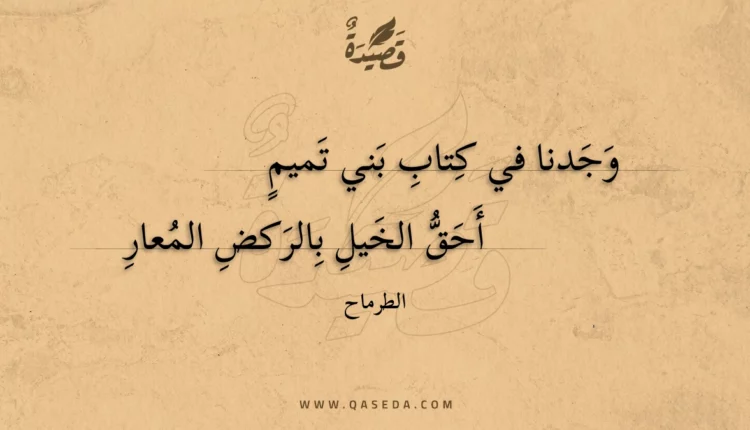 قَصِيدَةٌ
وَجَدنا في كِتابِ بَني تَميمٍ
أَحَقُّ الخَيلِ بِالرَكضِ المُعارِ
الطرماح
WWW.QASEDA.COM